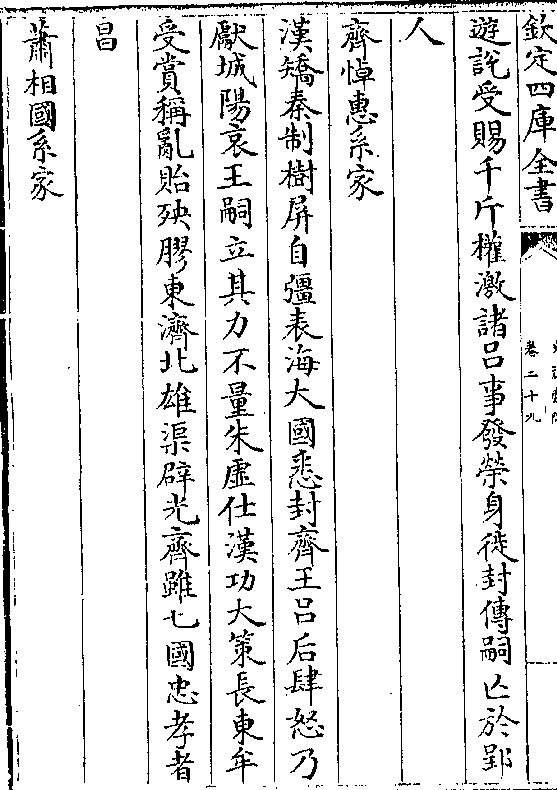 欽定四庫全書
卷二十九
遊說受賜千斤權激諸呂事發榮身徙封傳嗣亡於郢
人
齊悼惠系家
漢矯秦制樹屏自彊表海大國悉封齊王呂后肆怒乃
獻城陽哀王嗣立其力不量朱虛仕漢功大策長東牟
受賞稱亂貽殃膠東濟北雄渠辟光齊雖七國忠孝者
昌
蕭相國系家